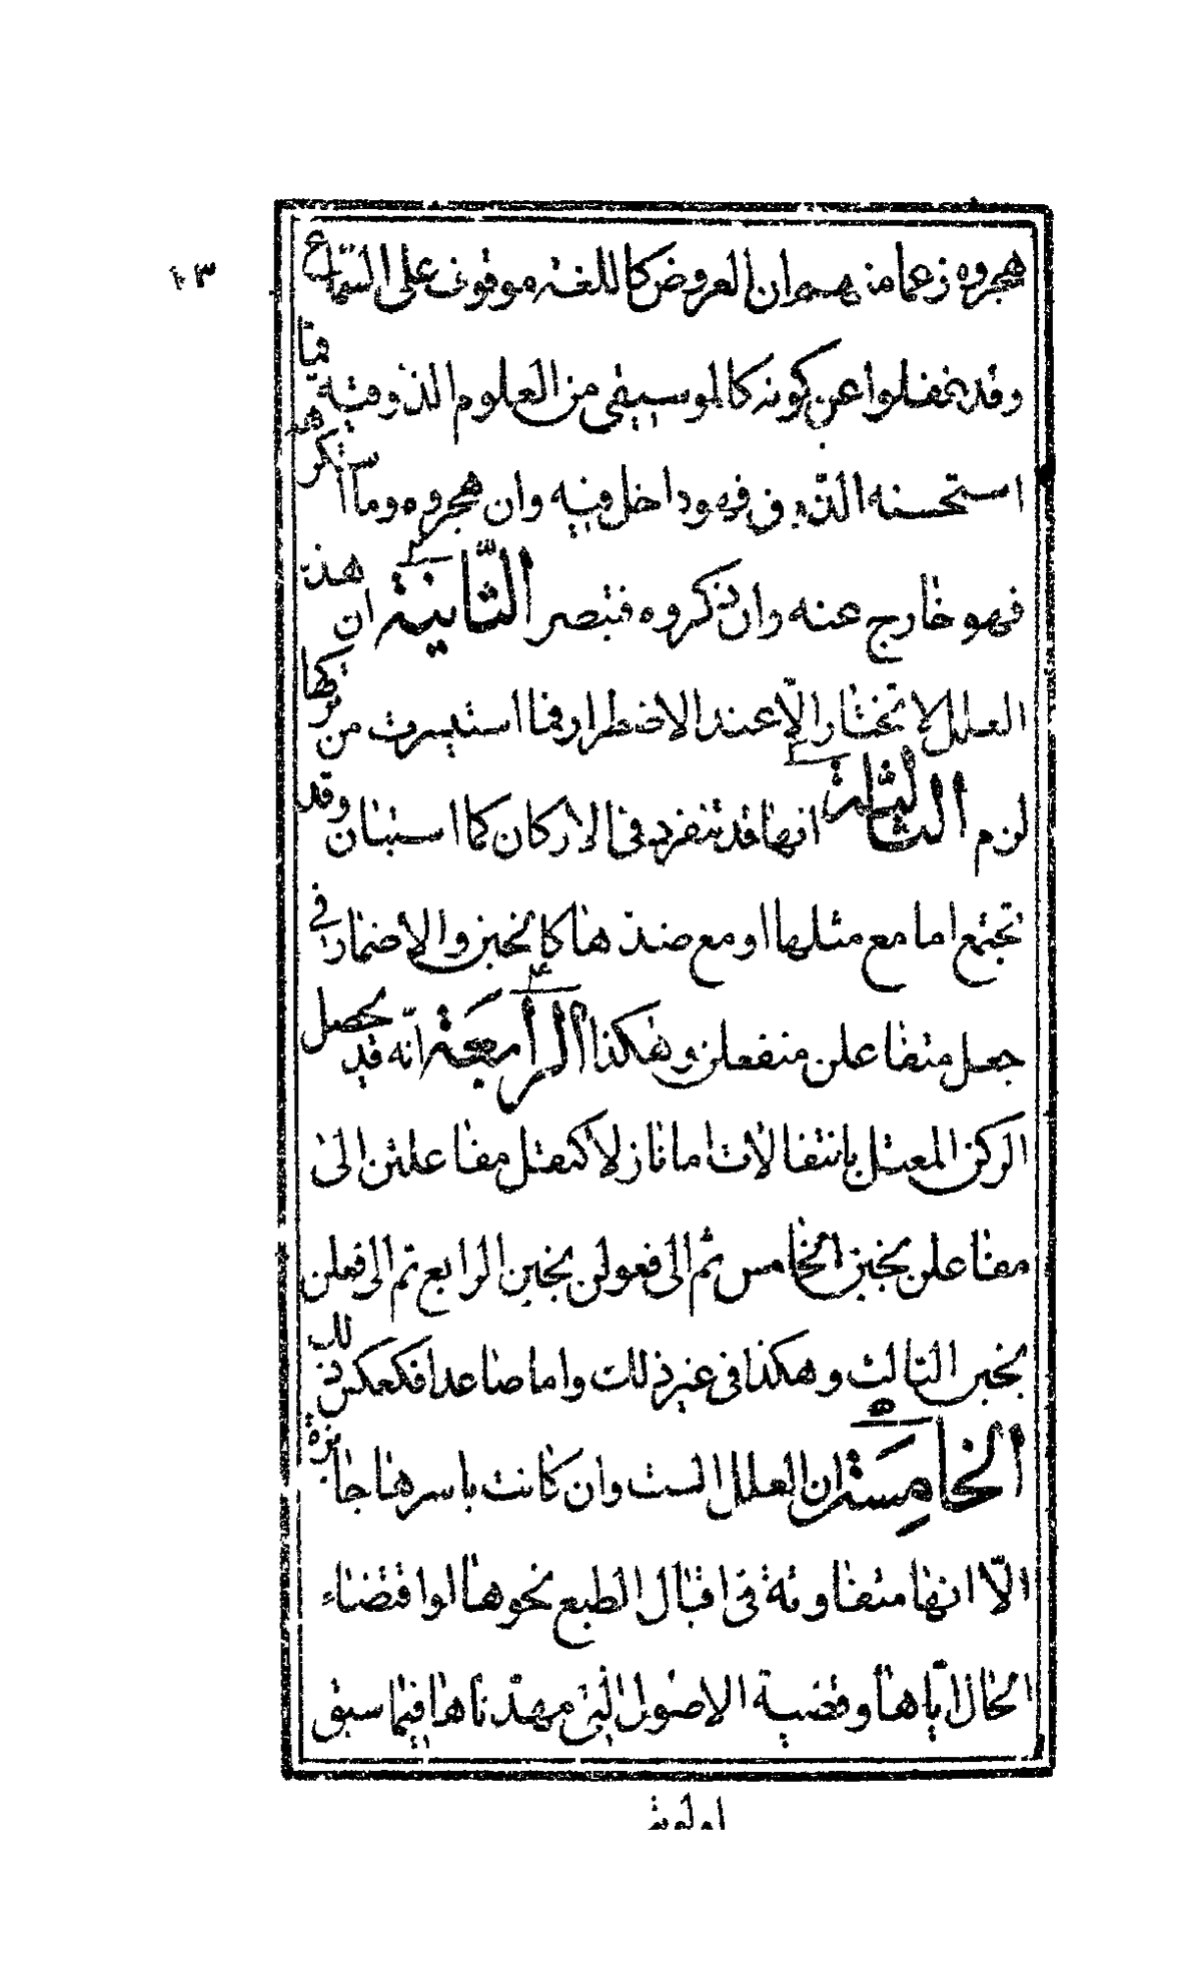 ١٣
هجروه زعما منهم ان العروض كاللغة موقوف على السّماع
وقد غفلوا عن كونه كالموسيقى من العلوم الذوقية فما
استحسنه الذّوق فهو داخل فيه وان هجروه وما استكرهه
فهو خارج عنه وان ذكروه فتبصر الثّانية ٢ ان هذه
العلل لا تختار الّا عند الاضطرار فما استيسرت من تركها
لزم الثّالثة ٣ انها قد تنفرد في الاركان كما استبان وقد
تجتمع اما مع مثلها او مع ضدّها كالخبن والاضمار في
جعل متفاعلن منفعلن وهكذا الرابعة ۴ انّه قد يحصل
الركن المعتل بانتقالات اما نازلا كنقل مفاعلتن الى
مفاعلن بخبن الخامس ثم الى فعولن بخبن الرابع ثم الى فعلن
بخبن الثالث وهكذا في غير ذلك واما صاعدا فكعكس ذلك
الخامسة ۵ ان العلل الست وان كانت باسرها جائزة
الّا انها متفاوتة في اقبال الطبع نحوها لو اقتضاء
الحال ايّاها وقضية الاصول التي مهدّناها فيما سبق
اولوية